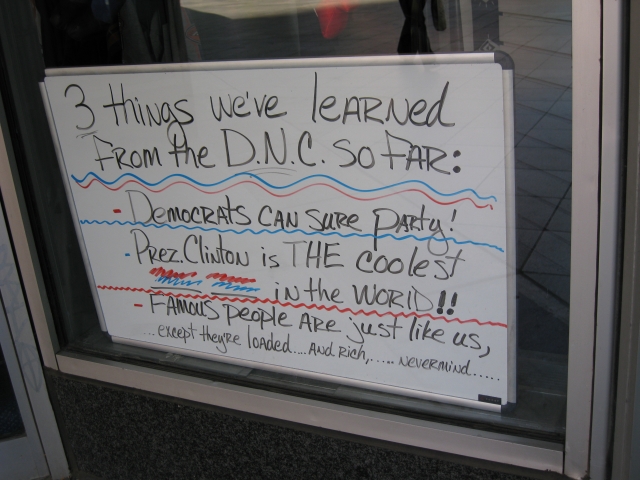 3 things we've learned
From the D.N.C. so far:
- Democrats can sure party!
- Prez. Clinton is THE coolest
in the world!!
- Famous people are just like us,
...except they're loaded....and rich,..... nevermind.....